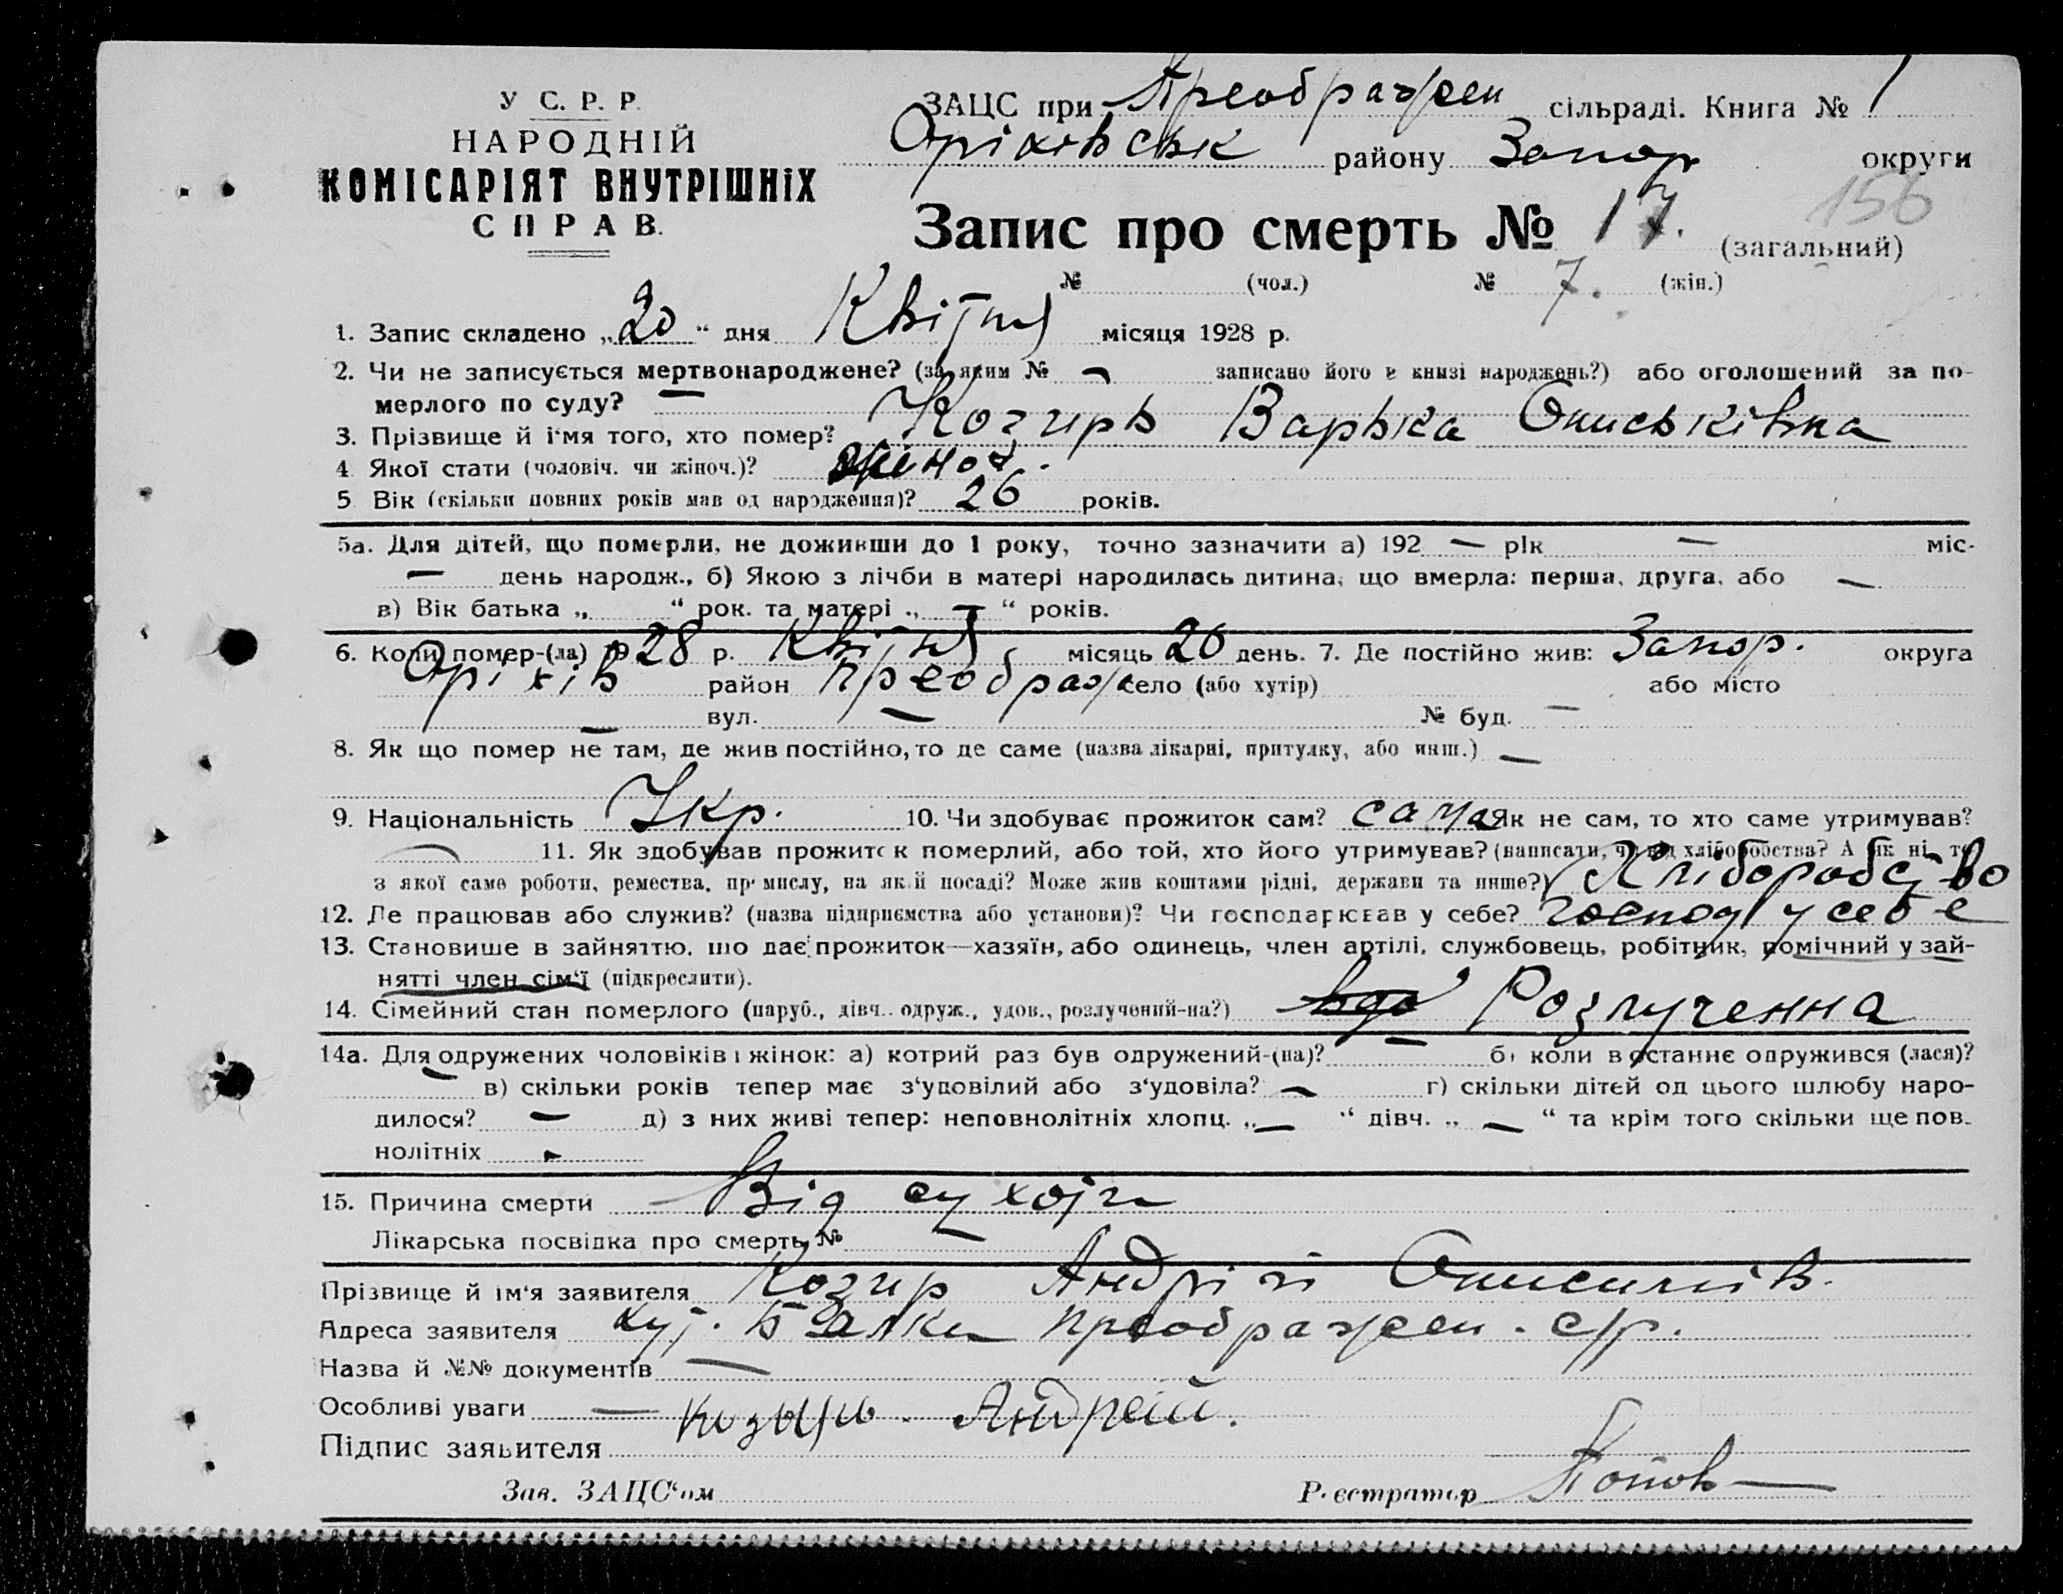 У С. Р. Р.
НАРОДНІЙ
КОМІСАРІЯТ ВНУТРІШНІХ
СПРАВ.
ЗАЦС при Преображен сільраді. Книга № 1
Оріхівськ району Запор округи
156
Запис про смерть № 17. (загальний)
№ (чол.) № 7. (жін.)
1. Запис складено „20“ дня Квітня місяця 1928 р.
2. Чи не записується мертвонароджене? (за яким № — записано його в книзі народжень?) або оголошений за по-
мерлого по суду? —
3. Прізвище й і‘мя того, хто помер? Козирь Варька Ониськівна
4 Якої стати (чоловіч. чи жіноч.)? жіноч.
5 Вік (скільки повних років мав од народження)? 26 років.
5а. Для дітей, що померли, не доживши до 1 року, точно зазначити а) 192 — рік — міс-
— день народж., б) Якою з лічби в матері народилась дитина, що вмерла: перша, друга, або —
в) Вік батька „ “ рок. та матері „ — “ років.
6. Коли помер-(ла) 1928 р. Квітня місяць 20 день. 7. Де постійно жив: Запор. округа
Оріхів район Преображ село (або хутір) або місто
— вул. — № буд. —
8. Як що помер не там, де жив постійно, то де саме (назва лікарні, притулку, або инш.) —
9. Національність Укр. 10. Чи здобуває прожиток сам? сама Як не сам, то хто саме утримував?
— 11. Як здобував прожиток померлий, або той, хто його утримував? (написати, чи від хліборобства? А як ні, то
з якої саме роботи, ремества, промислу, на якій посаді? Може жив коштами рідні, держави та инше?) Хліборобство
12. Де працював або служив? (назва підприємства або установи)? Чи господарював у себе? господ у себе
13. Становище в зайняттю, що дає прожиток—хазяїн, або одинець, член артілі, службовець, робітник, помічний у зай-
нятті член сім‘ї (підкреслити).
14. Сімейний стан померлого (паруб., дівч. одруж., удов., розлучений-на?) вдо Розлученна
14а. Для одружених чоловіків і жінок: а) котрий раз був одружений-(на)? — б) коли востаннє одружився (лася)?
— в) скільки років тепер має з‘удовілий або з‘удовіла? — г) скільки дітей од цього шлюбу наро-
дилося? — д) з них живі тепер: неповнолітніх хлопц. „ — “ дівч. „ — “ та крім того скільки ще пов-
нолітніх —
15. Причина смерти Від сухоти
Лікарська посвідка про смерть № —
Прізвище й ім‘я заявителя Козир Андрій
Адреса заявителя хут. Балки Преображен. с/р.
Назва й №№ документів —
Особливі уваги —
Підпис заявителя Козырь. Андрей.
Зав. ЗАЦС‘ом Реєстратор Попов